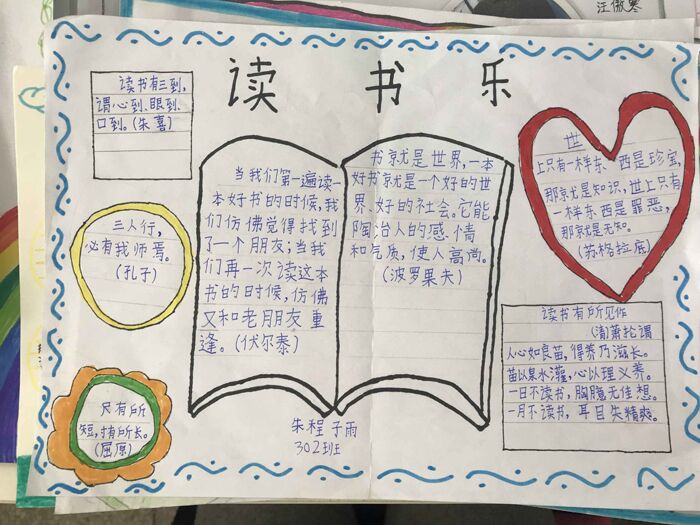 汪傲寒
读 书 乐
读书有三到,
谓心到、眼到、
口到。(朱喜)
三人行,
必有我师焉。
(孔子)
尺有所
短,寸有所长。
(屈原)
当我们第一遍读一
本好书的时候,我
们仿佛觉得找到
了一个朋友;当我
们再一次读这本
书的时候,仿佛
又和老朋友重
逢。(伏尔泰)
书就是世界,一本
好书就是一个好的世
界、好的社会。它能
陶冶人的感情
和气质,使人高尚。
(波罗果夫)
世
上只有一样东西是珍宝,
那就是知识,世上只有
一样东西是罪恶,
那就是无知。
(苏格拉底)
读书有所见作
(清)萧抡谓
人心如良苗,得养乃滋长。
苗以泉水灌,心以理义养。
一日不读书,胸臆无佳想。
一月不读书,耳目失精爽。
朱程子雨
302班